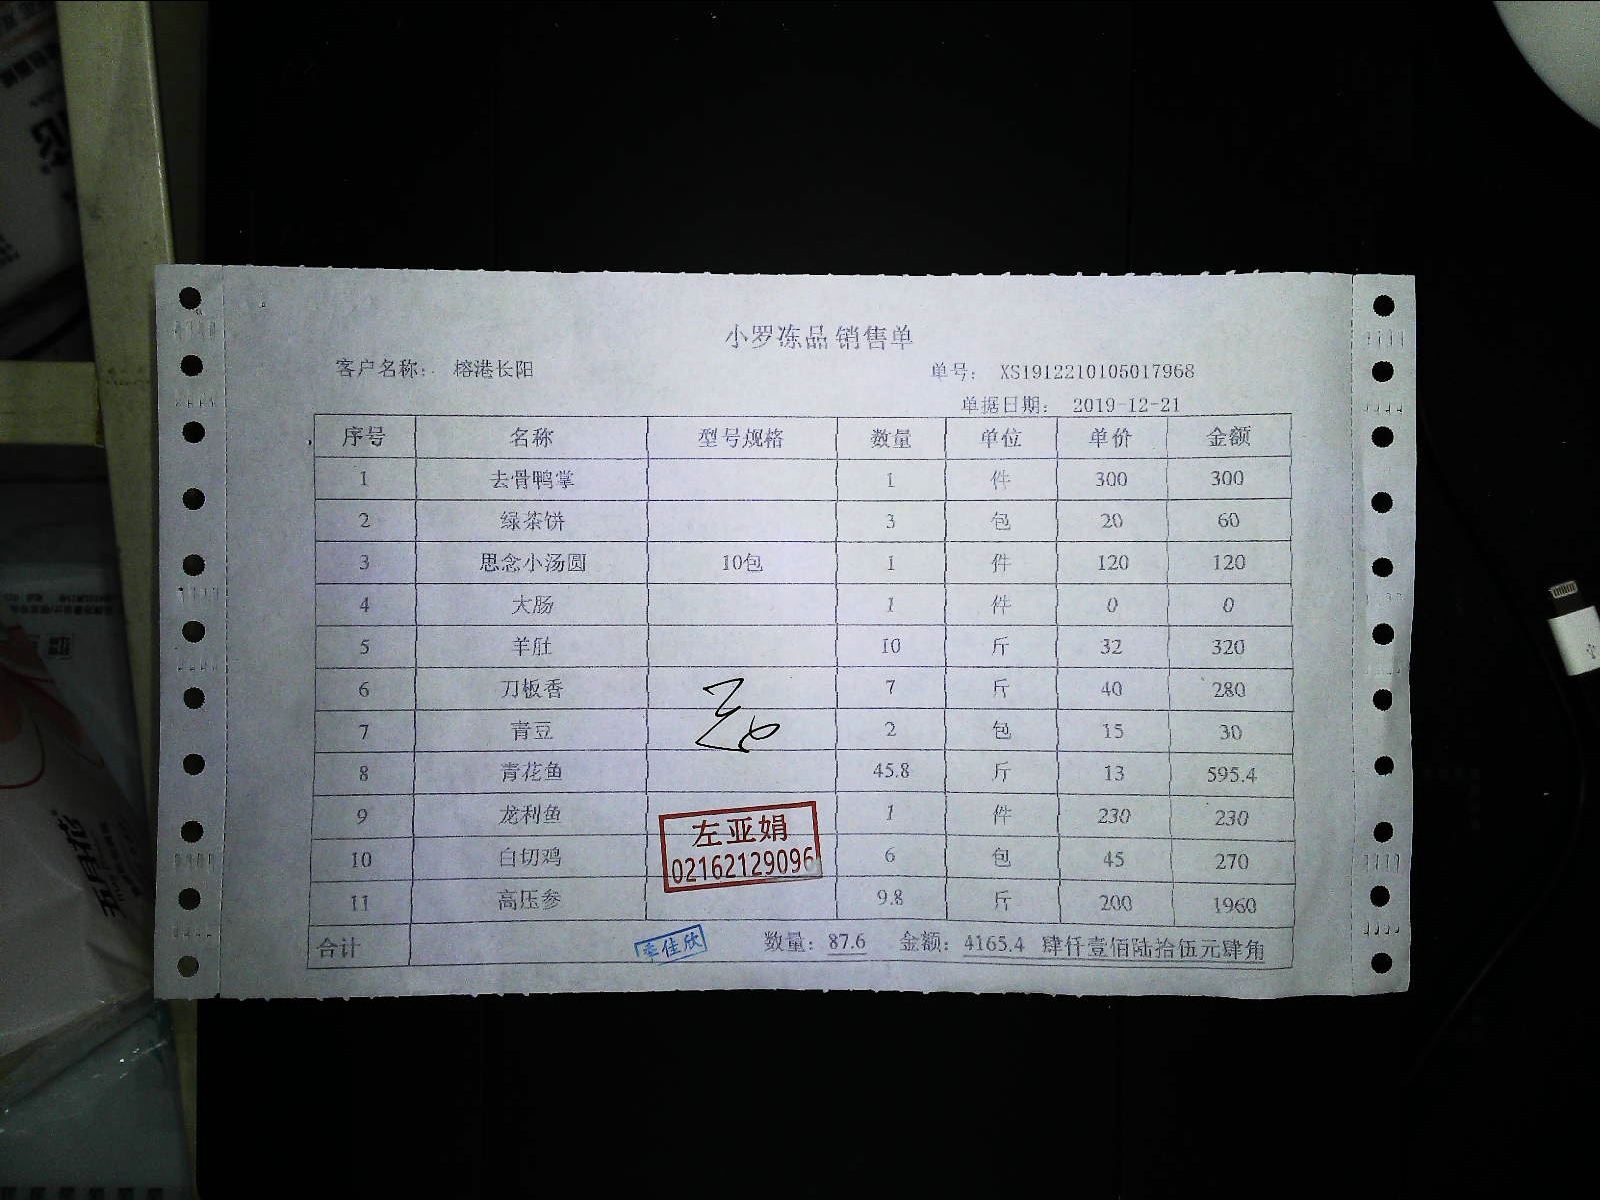 小罗冻品 销售单
客户名称： 榕港长阳 单号： XS1912210105017968
单据日期： 2019-12-21
序号 名称 型号规格 数量 单位 单价 金额
1 去骨鸭掌 1 件 300 300
2 绿茶饼 3 包 20 60
3 思念小汤圆 10包 1 件 120 120
4 大肠 1 件 0 0
5 羊肚 10 斤 32 320
6 刀板香 7 斤 40 280
7 青豆 2 包 15 30
8 青花鱼 45.8 斤 13 595.4
9 龙利鱼 1 件 230 230
左亚娟
10 白切鸡 6 包 45 270
02162129096
11 高压参 9.8 斤 200 1960
合计 李佳欣 数量：87.6 金额：4165.4 肆仟壹佰陆拾伍元肆角